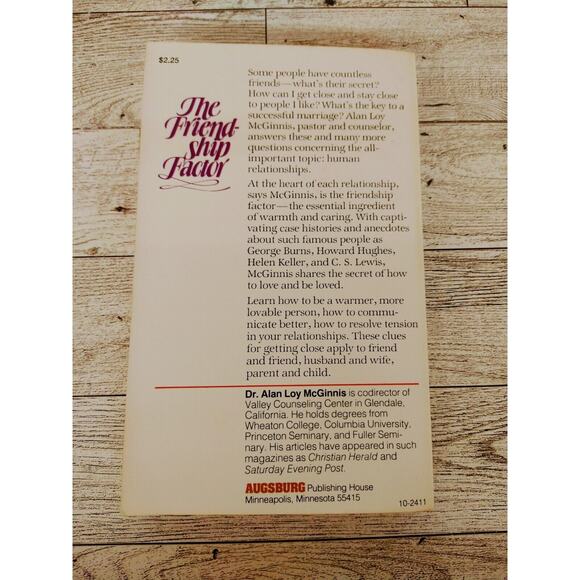 $2.25
The
Friend-
ship
Factor
Some people have countless
friends—what's their secret?
How can I get close and stay close
to people I like? What's the key to a
successful marriage? Alan Loy
McGinnis, pastor and counselor,
answers these and many more
questions concerning the all-
important topic: human
relationships.
At the heart of each relationship,
says McGinnis, is the friendship
factor—the essential ingredient
of warmth and caring. With capti-
vating case histories and anecdotes
about such famous people as
George Burns, Howard Hughes,
Helen Keller, and C. S. Lewis,
McGinnis shares the secret of how
to love and be loved.
Learn how to be a warmer, more
lovable person, how to commu-
nicate better, how to resolve tension
in your relationships. These clues
for getting close apply to friend
and friend, husband and wife,
parent and child.
Dr. Alan Loy McGinnis is codirector of
Valley Counseling Center in Glendale,
California. He holds degrees from
Wheaton College, Columbia University,
Princeton Seminary, and Fuller Semi-
nary. His articles have appeared in such
magazines as Christian Herald and
Saturday Evening Post.
AUGSBURG Publishing House
Minneapolis, Minnesota 55415
10-2411